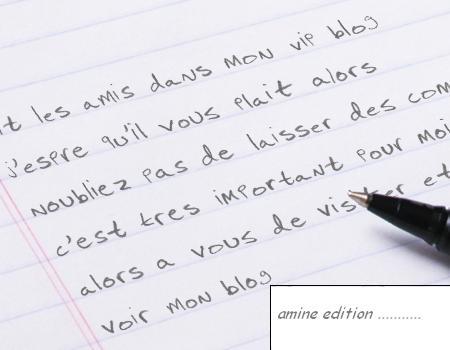 les amis dans mon vip blog
j'espre qu'il vous plait alors
noubliez pas de laisser des com
c'est tres important pour moi
alors a vous de visiter et
voir mon blog
amine edition ...........